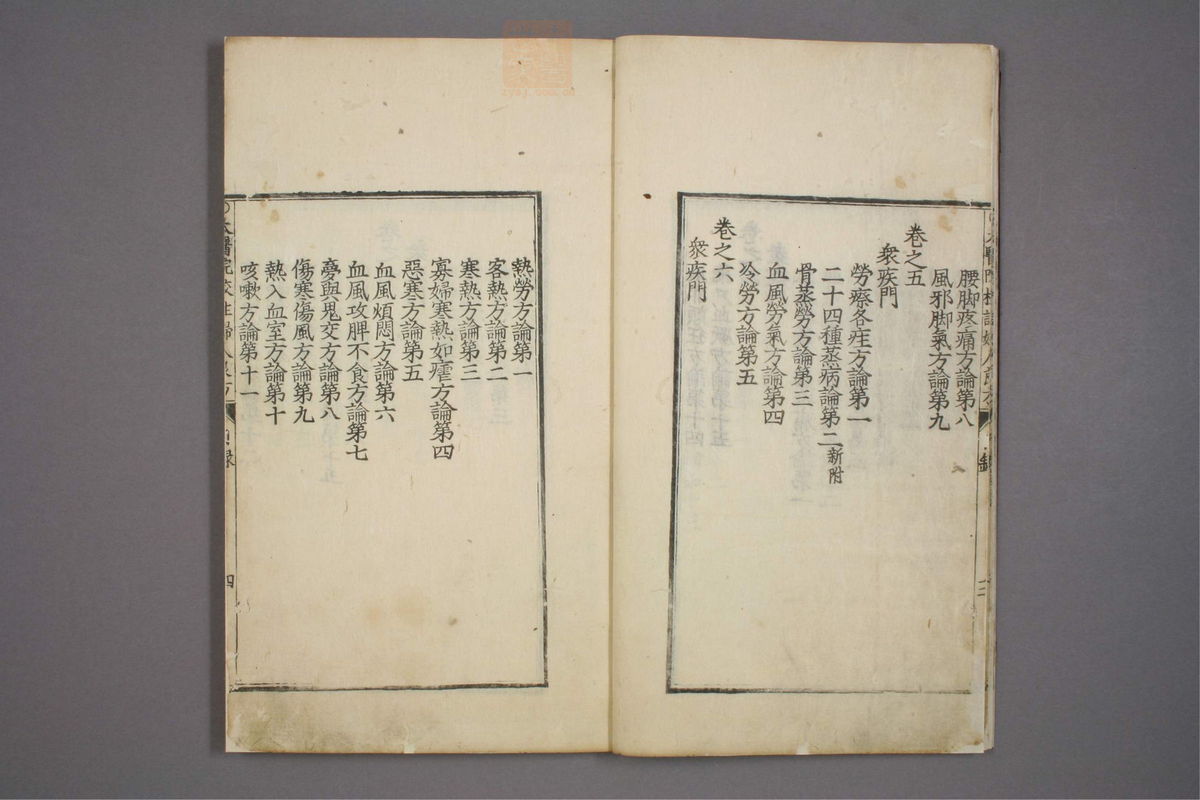 腰脚疼痛方論第八
風邪脚氣方論第九
卷之五
衆疾門
勞瘵各疰方論第一
二十四種蒸病論第二新附
骨蒸勞方論第三
血風勞氣方論第四
冷勞方論第五
卷之六
衆疾門
熱勞方論第一
客熱方論第二
寒熱方論第三
寡婦寒熱如瘧方論第四
惡寒方論第五
血風煩悶方論第六
血風攻脾不食方論第七
夢與鬼交方論第八
傷寒傷風方論第九
熱入血室方論第十
咳嗽方論第十一
太醫院校註婦人良方
目録
四